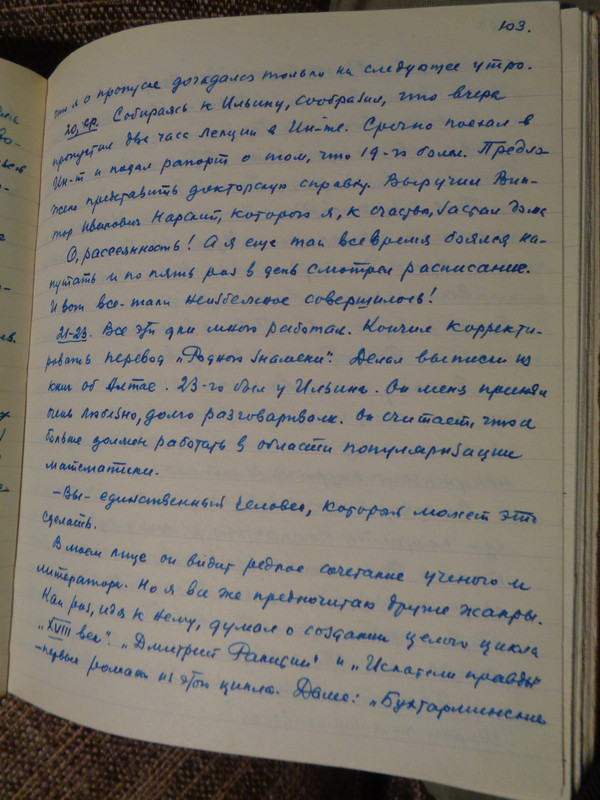 103.
что о пропуске догадался только на следующее утро.
20, ср. Собираясь к Ильину, сообразил, что вчера
пропустил два часа лекции в Ин-те. Срочно поехал в
Ин-т и подал рапорт о том, что 19-го болел. Предло-
жено представить докторскую справку. Выручил Вик-
тор Иванович, которого я, к счастью, застал дома
О, рассеянность! А я еще так все время боялся на-
путать и по пять раз в день смотрел расписание.
И вот все-таки неизбежное совершилось!
21-23. Все эти дни много работал. Кончил корректи-
ровать перевод „Родного знамени“. Делал выписки из
книг об Алтае. 23-го был у Ильина. Он меня принял
очень любезно, долго разговаривали. Он считает, что я
больше должен работать в области популяризации
математики.
- Вы - единственный человек, который может это
сделать.
В моем лице он видит редкое сочетание ученого и
литератора. Но я все же предпочитаю другие жанры.
Как раз, идя к нему, думал о создании целого цикла
„XVIII век“. „Дмитрий Ракитин“ и „Искатели правды“
- первые романы из этого цикла. Далее: „Бухтарминские